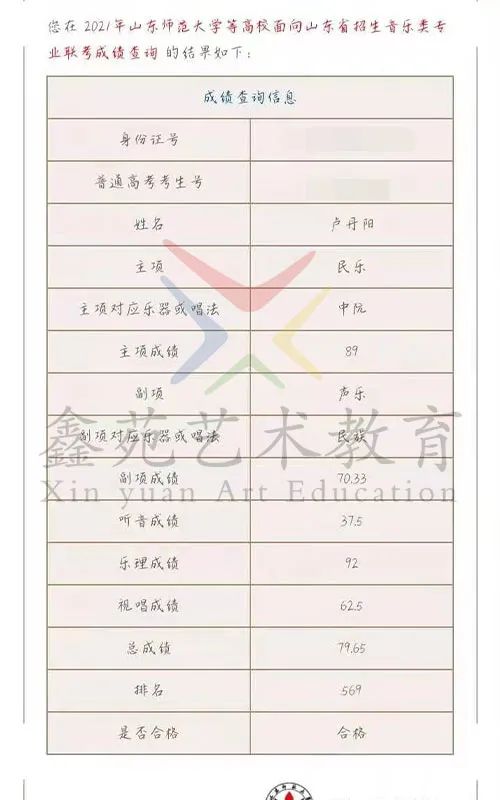 您在 2021年山东师范大学等高校面向山东省招生音乐类专
业联考成绩查询 的结果如下：
成绩查询信息
身份证号
普通高考考生号
姓名 卢丹阳
主项 民乐
主项对应乐器或唱法 中阮
主项成绩 89
副项 声乐
鑫苑艺术教育
副项对应乐器或唱法 民族
副项成绩 70.33
Xin yuan Art Education
听音成绩 37.5
乐理成绩 92
视唱成绩 62.5
总成绩 79.65
排名 569
是否合格 合格